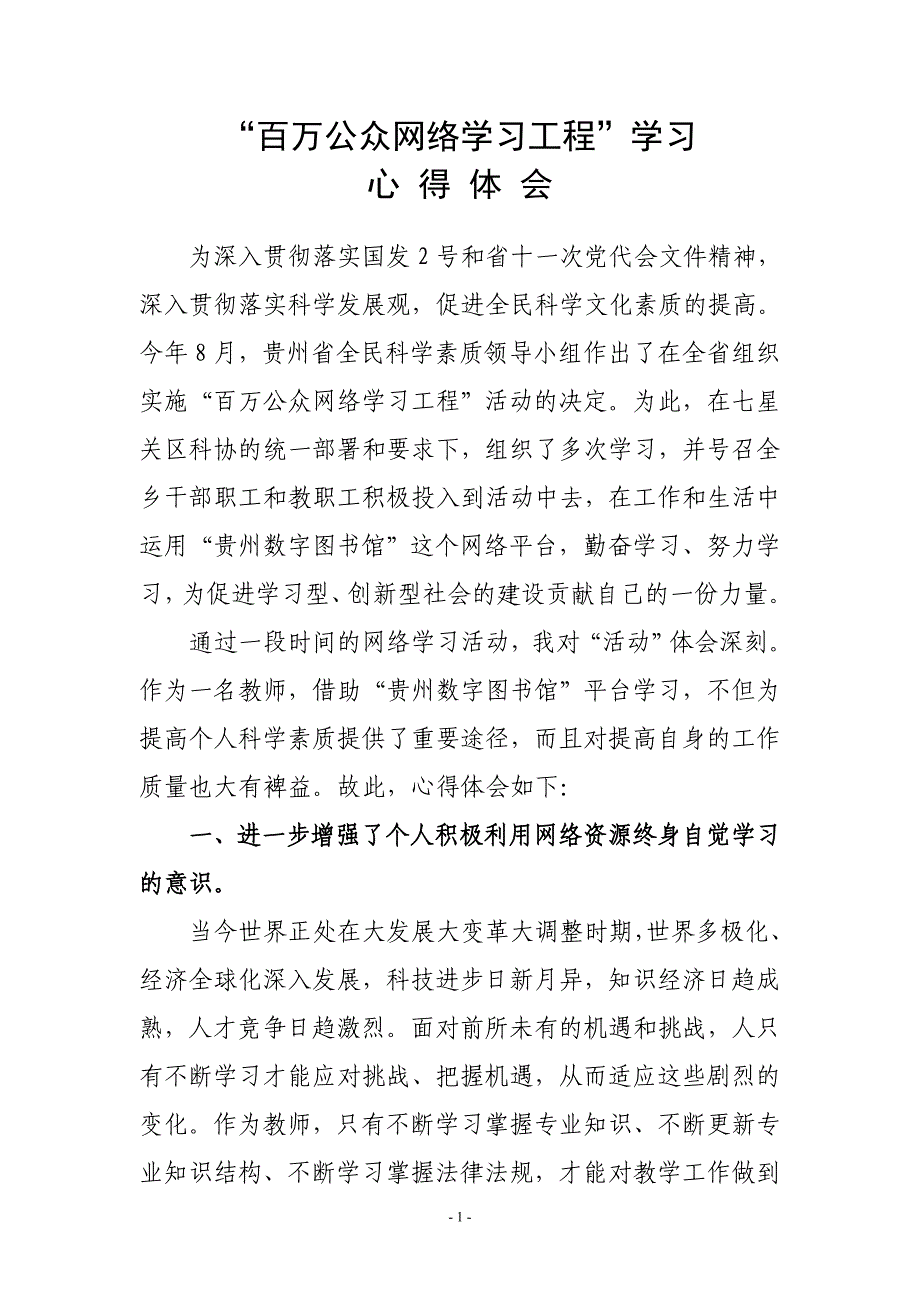 “百万公众网络学习工程”学习
心 得 体 会
为深入贯彻落实国发 2 号和省十一次党代会文件精神，
深入贯彻落实科学发展观，促进全民科学文化素质的提高。
今年 8 月，贵州省全民科学素质领导小组作出了在全省组织
实施“百万公众网络学习工程”活动的决定。为此，在七星
关区科协的统一部署和要求下，组织了多次学习，并号召全
乡干部职工和教职工积极投入到活动中去，在工作和生活中
运用“贵州数字图书馆”这个网络平台，勤奋学习、努力学
习，为促进学习型、创新型社会的建设贡献自己的一份力量。
通过一段时间的网络学习活动，我对“活动”体会深刻。
作为一名教师，借助“贵州数字图书馆”平台学习，不但为
提高个人科学素质提供了重要途径，而且对提高自身的工作
质量也大有裨益。故此，心得体会如下：
一、进一步增强了个人积极利用网络资源终身自觉学习
的意识。
当今世界正处在大发展大变革大调整时期，世界多极化、
经济全球化深入发展，科技进步日新月异，知识经济日趋成
熟，人才竞争日趋激烈。面对前所未有的机遇和挑战，人只
有不断学习才能应对挑战、把握机遇，从而适应这些剧烈的
变化。作为教师，只有不断学习掌握专业知识、不断更新专
业知识结构、不断学习掌握法律法规，才能对教学工作做到
- 1 -